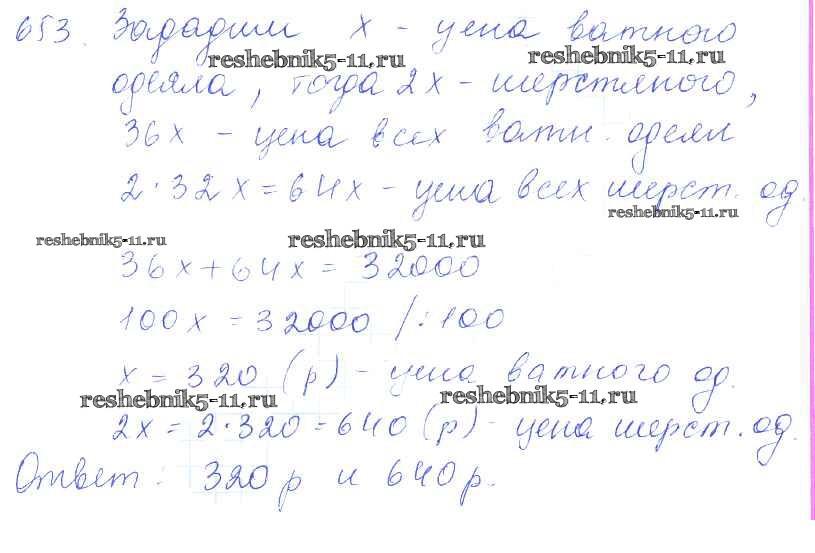 653. Зададим x - цена ватного
reshebnik5-11.ru reshebnik5-11.ru
одеяла, тогда 2x - шерстяного,
36x - цена всех ватн. одеял
2·32x=64x - цена всех шерст. од.
reshebnik5-11.ru
reshebnik5-11.ru reshebnik5-11.ru
36x+64x = 32000
100x = 32000 /:100
x = 320 (р) - цена ватного од.
reshebnik5-11.ru reshebnik5-11.ru
2x = 2·320 = 640 (р) - цена шерст. од.
Ответ: 320 р и 640 р.